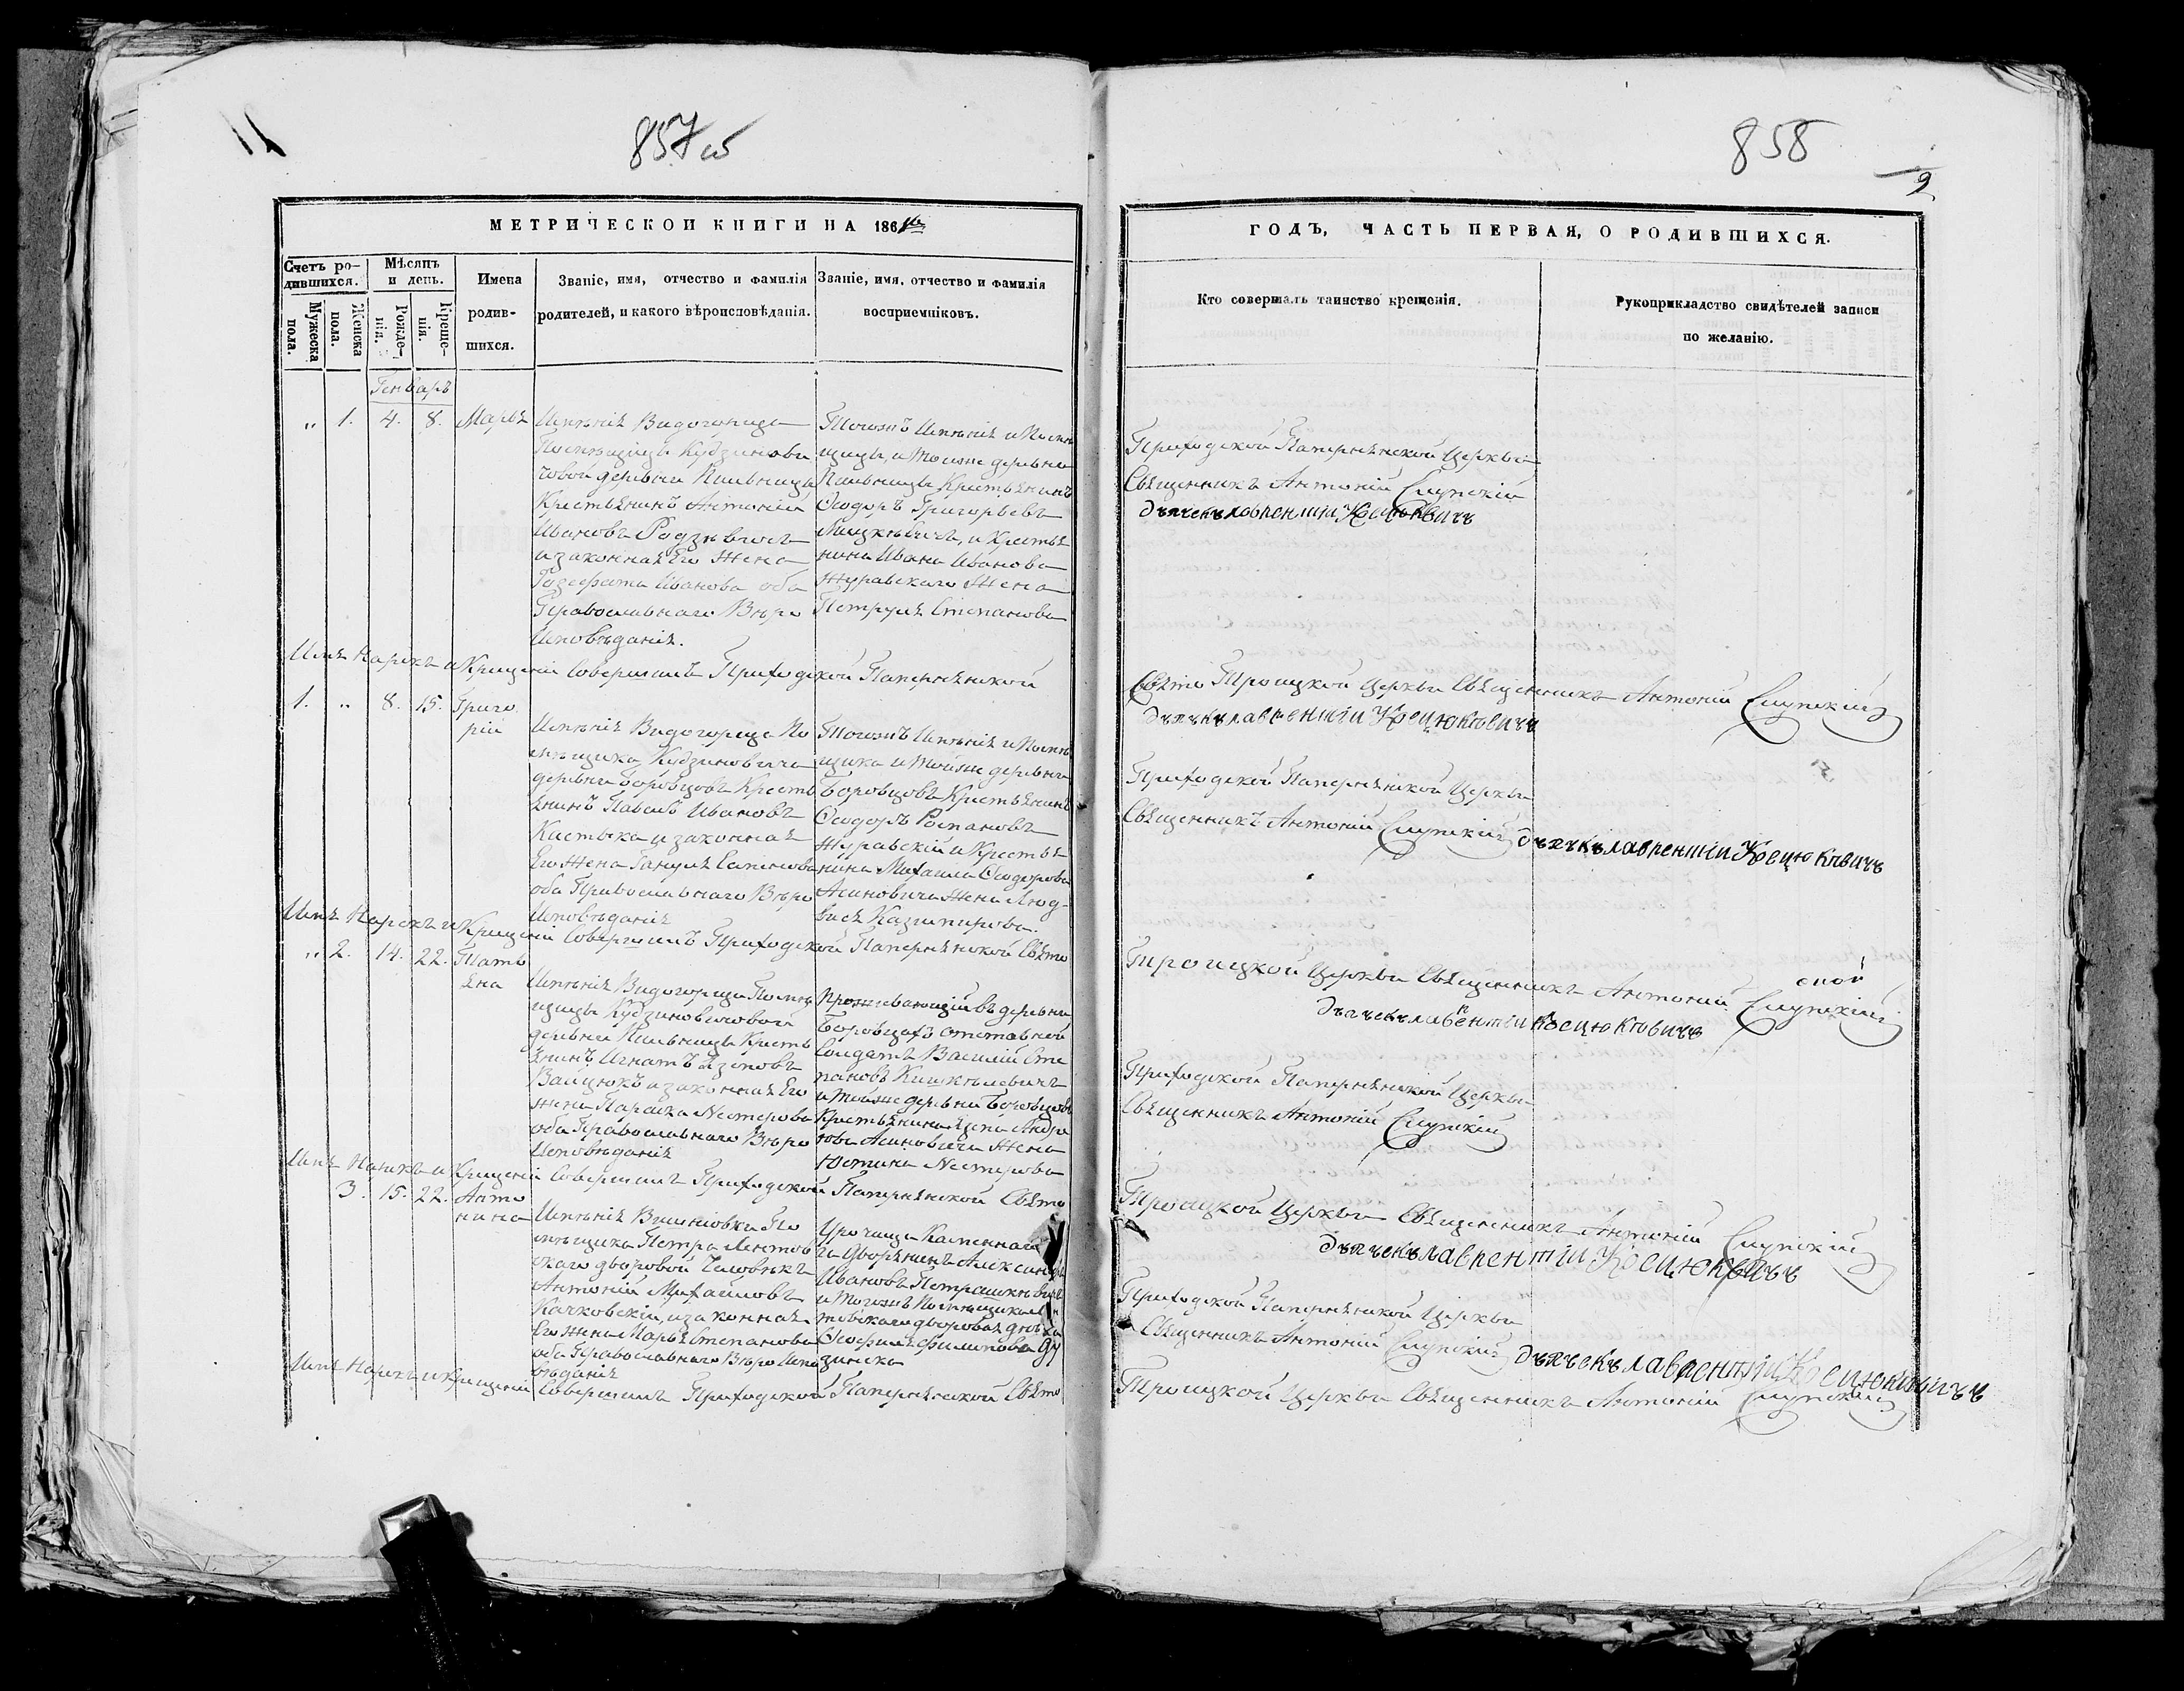 857 об
858
9
МЕТРИЧЕСКОЙ КНИГИ НА 1861й
Счетъ ро-
дившихся.
Мужеска пола.
Женска пола.
Мѣсяцъ
и день.
Рожде-
нія.
Креще-
нія.
Имена
родив-
шихся.
Званіе, имя, отчество и фамилія
родителей, и какого вѣроисповѣданія.
Званіе, имя, отчество и фамилія
воспріемниковъ.
Генваръ
„ 1. 4. 8. Марья
Имѣнія Видогоща
Помѣщицы Кудзинови
човой деревни Пильницы
Крестьянинъ Антоній
Ивановъ Родзевичъ
и законная Его Жена
Іозефата Иванова оба
Православнаго Вѣро
Исповѣданія.
Тогожъ Имѣнія и Помѣ
щицы, и тойже деревни
Пильницы Крестьянинъ
Ѳеодоръ Григорьевъ
Мицкѣвичъ, и Крестья
нина Ивана Иванова
Журавскаго Жена
Петруля Степанова
Имя Нарекъ и Крещеніе Совершилъ Приходской Паперненской
1. „ 8. 15. Григо
рій
Имѣнія Видогореща По
мѣщика Кудзиновича
деревни Боровцовъ Кресть
янинъ Павелъ Ивановъ
и законная
Его Жена Гануля
оба Православнаго Вѣро
Исповѣданія
Тогожъ Имѣнія и Помѣ
щика и тойже деревни
Боровцовъ Крестьянинъ
Ѳеодоръ Романовъ
Журавскій и Крестья
нина Михаила Ѳеодорова
Асиновича Жена Люд-
вися Казимирова.
Имя Нарекъ и Крещеніе Совершилъ Приходской Паперненской Свято
„ 2. 14. 22. Тать
яна
Имѣнія Видогореща Помѣ
щицы Кудзиновичовой
деревни Пильницы Кресть
янинъ Игнатъ Язеповъ
Вайцюкъ и законная Его
жена Параска Нестерова
оба Православнаго Вѣро
Исповѣданія
Проживающій въ деревни
Боровцахъ отставной
Солдатъ Василій Сте
пановъ
и тойже деревни Боровцовъ
Крестьянина Андре
ева Асиновича Жена
Юстина Нестерова
Имя Нарекъ и Крещеніе Совершилъ Приходской Паперненской Свято
3. 15. 22. Анто
нина
Имѣнія Вишніовки По
мѣщика Петра Лентов
скаго дворовой Человѣкъ
Антоній Михайловъ
Качковскій, и законная
Его жена Марья Степанова
оба Православнаго Вѣро Испо
вѣданія
Урочища
Дворянинъ Александръ
Ивановъ Петрашкѣвичъ
и Тогожъ Помѣщика Лен
товскаго дворовая
Ѳеофиля Филипова Ду
зинска
Имя Нарекъ и Крещеніе Совершилъ Приходской Паперненской Свято
ГОДЪ, ЧАСТЬ ПЕРВАЯ, О РОДИВШИХСЯ.
Кто совершалъ таинство крещенія.
Рукоприкладство свидѣтелей записи
по желанію.
Приходской Паперненской Церкви
Священникъ Антоній Слупскій
дьячекъ лаврентіи Косцюкевичъ
Свято Троицкой Церкви Священникъ Антоній Слупскій
дьячекъ лаврентіи Косцюкевичъ
Приходской Паперненской Церкви
Священникъ Антоній Слупскій дьячекъ лаврентіи Косцюкевичъ
Троицкой Церкви Священникъ Антоній Слупскій
дьячекъ лаврентіи Косцюкевичъ
Приходской Паперненской Церкви
Священникъ Антоній Слупскій
Троицкой Церкви Священникъ Антоній Слупскій
дьячекъ лаврентіи Косцюкевичъ
Приходской Паперненской Церкви
Священникъ Антоній Слупскій дьячекъ лаврентіи Косцюкевичъ
Троицкой Церкви Священникъ Антоній Слупскій